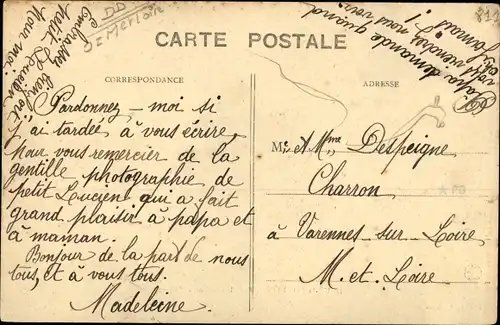 CARTE POSTALE
CORRESPONDANCE
ADRESSE
Pardonnez-moi si
j'ai tardée à vous écrire,
Pour vous remercier de la
gentille photographie de
petit Loucient qui a fait
grand plaisir à papa et
à maman.
Bonjour de la part de nous
tous, et à vous tous.
Madeleine.
Embrassez bien fort
petit
Pour moi.
Papa demande quand
vous viendrez nous voir
Mr et Mme Despeigne
Charron
à Varennes-sur-Loire
M.et.Loire